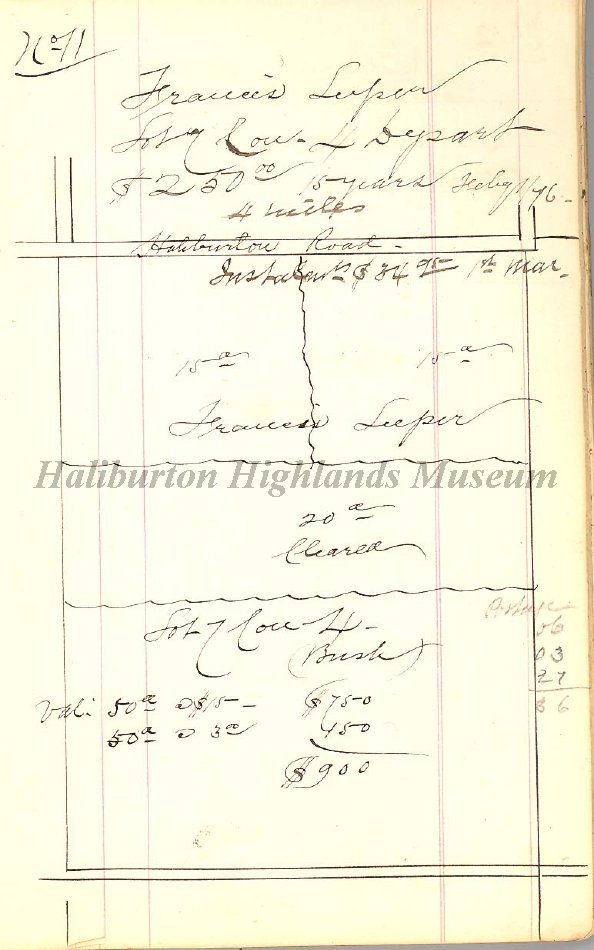 No 11
Francis Leeper
Lot 7 Con. 4 Dysart
$250.00 15 years Feby 1/76.
4 miles
Haliburton Road.
Instalmts $34 95 1st Mar.
15 a 15 a
Francis Leeper
Haliburton Highlands Museum
20 a
Cleared
Lot 7 Con 4
(Bush)
Val: 50a @ $15 $750
50a @ 3 450
$900
06
03
27
36